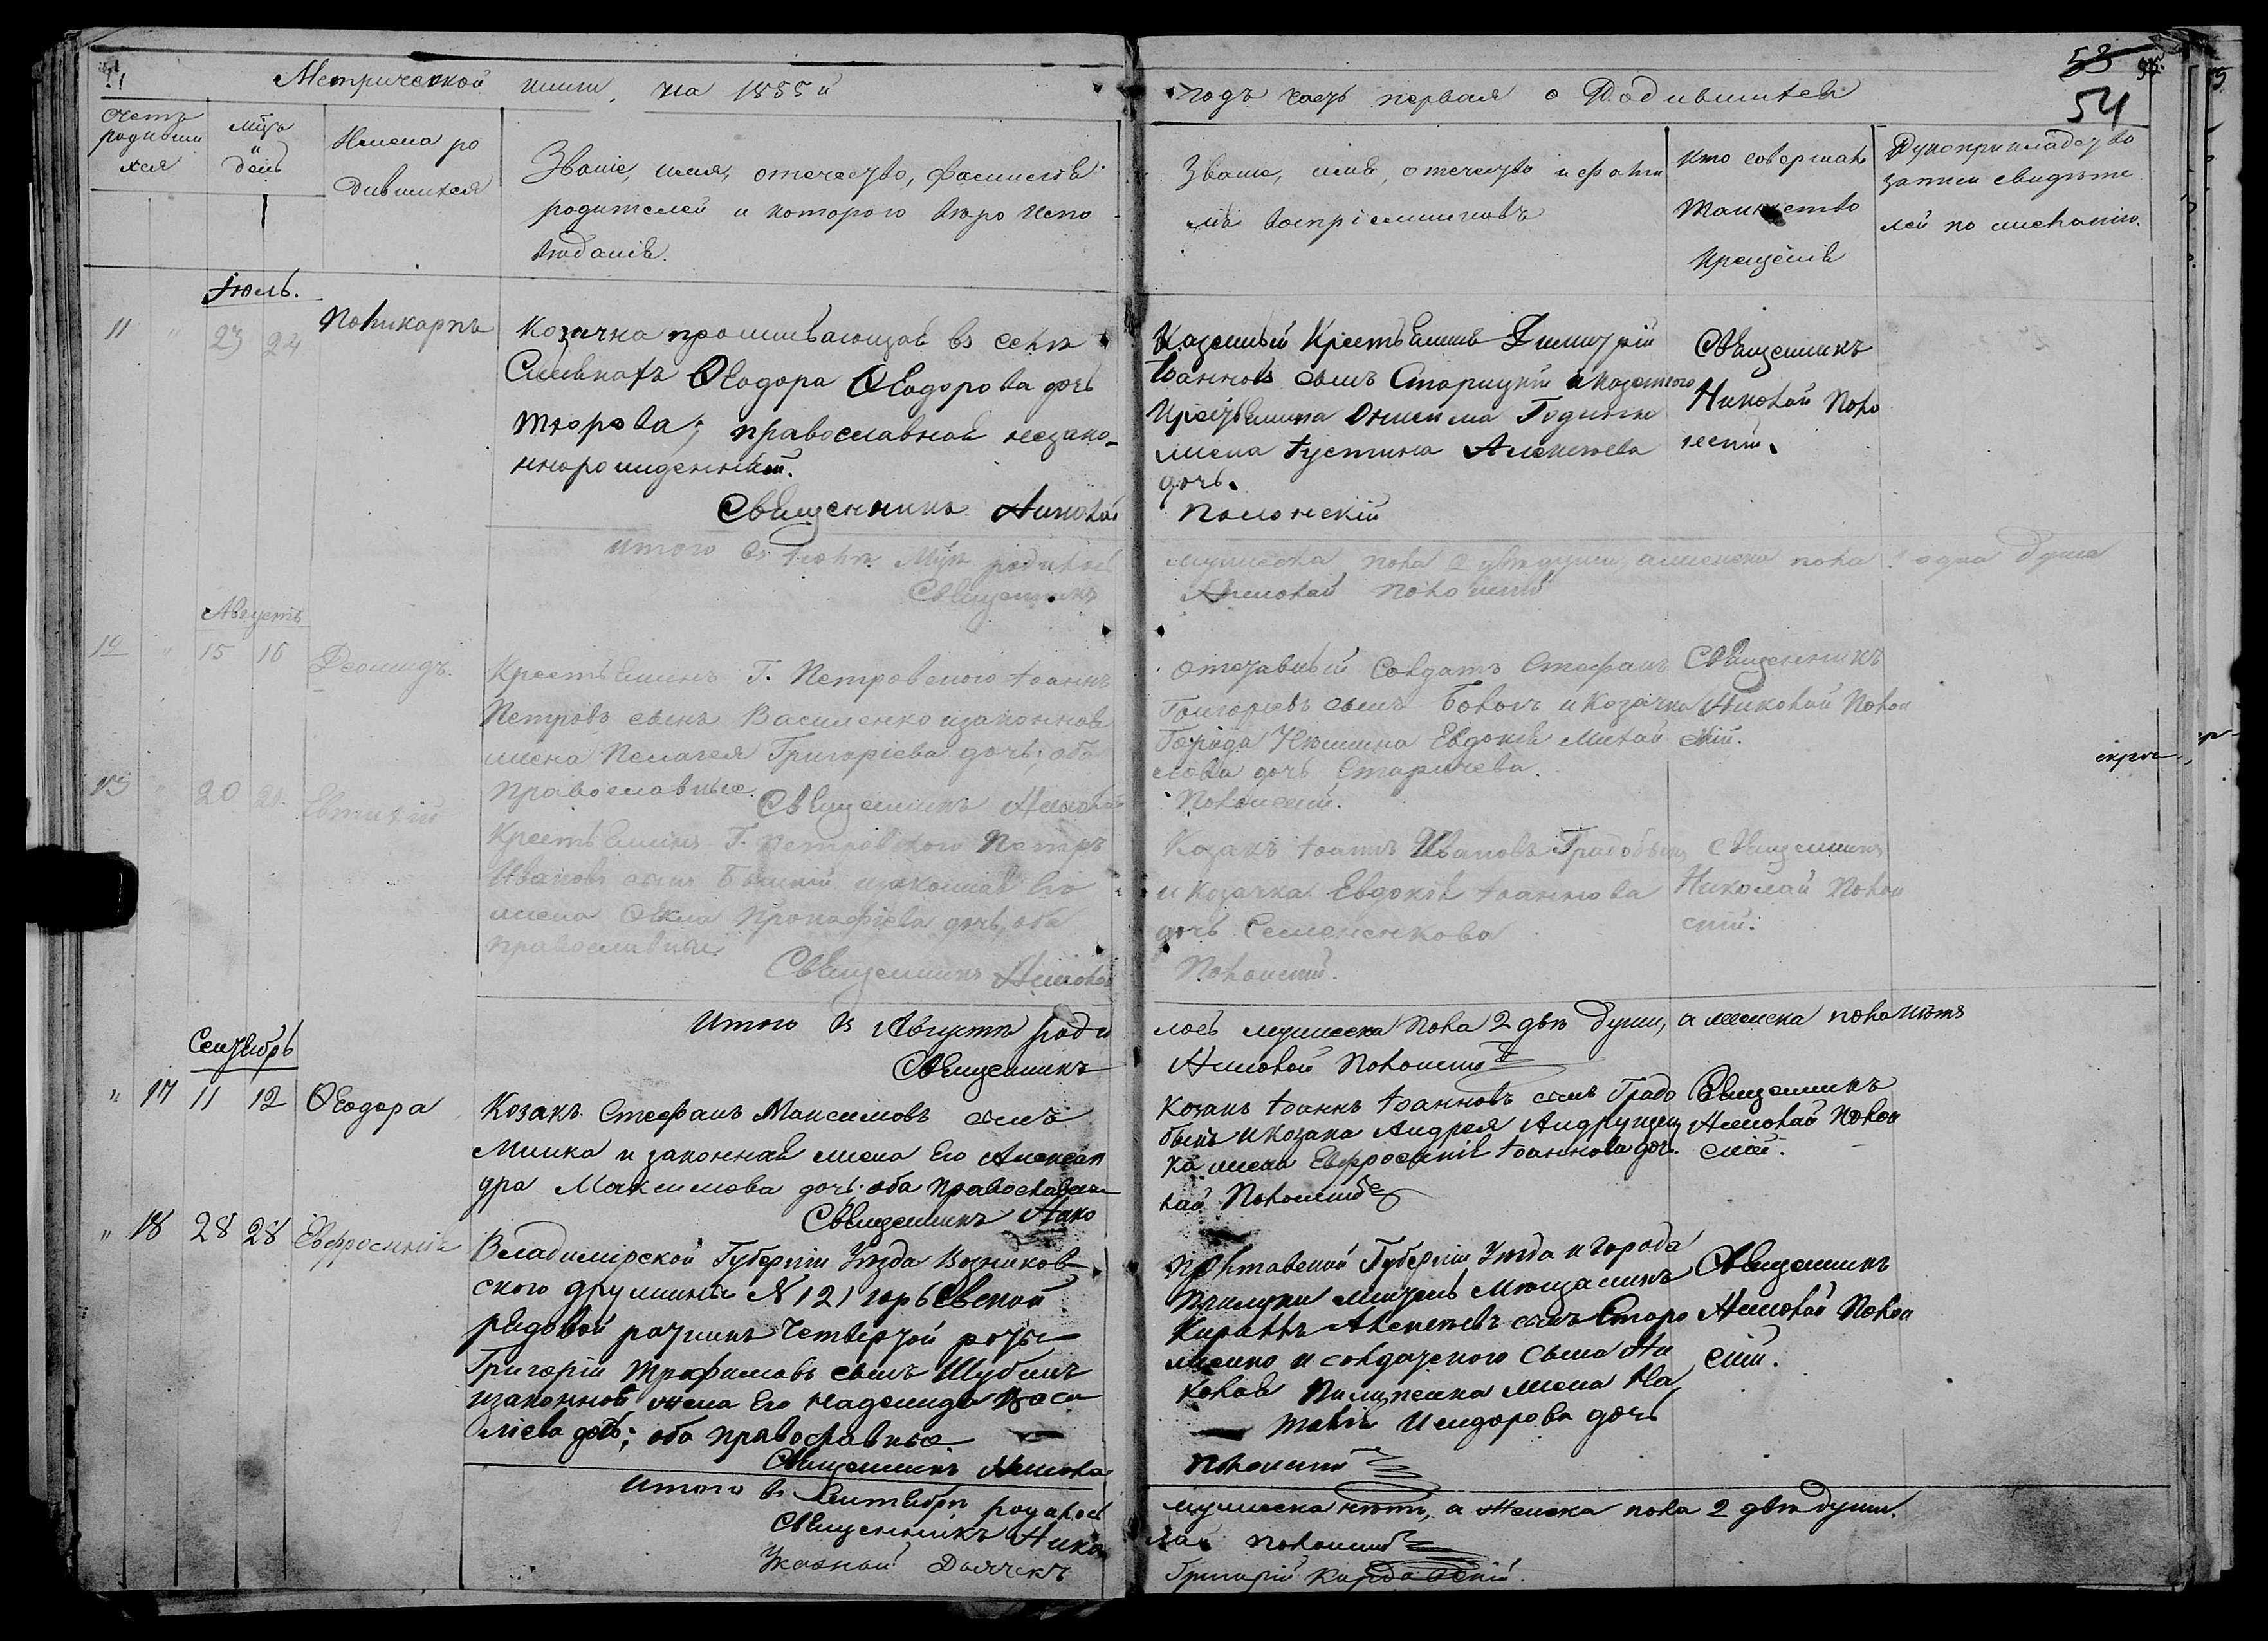 Метрической книги, на 1855й
годъ часть первая о Родившихся
53
54
Счетъ родивши
хся
Мцъ
и
день
Имена ро
дившихся
Званіе, имя, отечество, фамилія
родителей и которого вѣро испо
вѣданія.
Званіе, имя, отечество и фами
лія воспріемниковъ
Кто совершалъ
таинство
крещенія
Рукоприкладство
записи свидѣте
лей по желанію.
Іюль.
11 " 23 24 Поликарпъ
Козачка проживающая въ селѣ
Ѳеодора Ѳеодорова дочь
Тюрова; православной незако-
ннорожденный.
Священникъ Николай
Казенный Крестьянинъ Димитрій
Іоанновъ сынъ Старицкій и казенного
Крестьянина Онисима
жена Іустина Алексѣева
дочь.
Полонскій
Священникъ
Николай Поло
нскій.
Итого въ Іюлѣ Мцѣ родилось
Священникъ
мужеска пола 2 двѣ души, а женска пола 1 одна душа
Николай Полонскій
Августъ
12 " 15 16 Леонидъ.
Крестьянинъ Г. Петровского Іоаннъ
Петровъ сынъ Василенко и законная
жена Пелагея Григоріева дочь; оба
Православные.
Священникъ Николай
отставный Солдатъ Стефанъ
Григоріевъ сынъ и Козачка
Евдокія Михай
лова дочь Старичева.
Полонскій.
Священникъ
Николай Полон
скій.
13 " 20 21 Евтихій
Крестьянинъ Г. Петровского Петръ
Ивановъ сынъ и законная его
жена Ѳекла Прокофіева дочь, оба
православные
Священникъ Николай
Козакъ Іоаннъ Ивановъ Градобыкъ
и козачка Евдокія Іоаннова
дочь Семененкова
Полонскій.
Священникъ
Николай Полон
скій.
Итого въ Августѣ роди
Священникъ
лось мужеска пола 2 двѣ души, а женска пола нѣтъ
Николай Полонскій
Сентябрь
" 17 11 12 Ѳеодора
Козакъ Стефанъ Максимовъ сынъ
Минка и законная жена его Алексан
дра Максимова дочь. оба Православны
Священникъ Нико
Козакъ Іоаннъ Іоанновъ сынъ Градо
быкъ и козака Андрея Андрущен
ка жена Евфросинія Іоаннова доч.
лай Полонскій
Священникъ
Николай Полон
скій.
" 18 28 28 Евфросинія
Владимірской Губерніи Уѣзда Вязников
ского дружины № 121 Юрьевской
рядовой ратникъ четвертой роты
Григорій Трофимовъ сынъ Шубинъ
и законной жена его Надежида Васи
ліева дочь; оба православные.
Священникъ Николай
Полтавской Губерніи Уѣзда и города
Прилуки житель Мѣщанинъ
Кириллъ Алексѣевъ сынъ Старо
женко и солдатского сына Ни
колая жена На
талія Исидорова дочь
Полонскій
Священникъ
Николай Полон
скій.
Итого въ Сентябрѣ родилось
Священникъ Нико
Указной Дьячекъ
мужеска нѣтъ, а женска пола 2 двѣ души.
лай Полонскій
Григорій